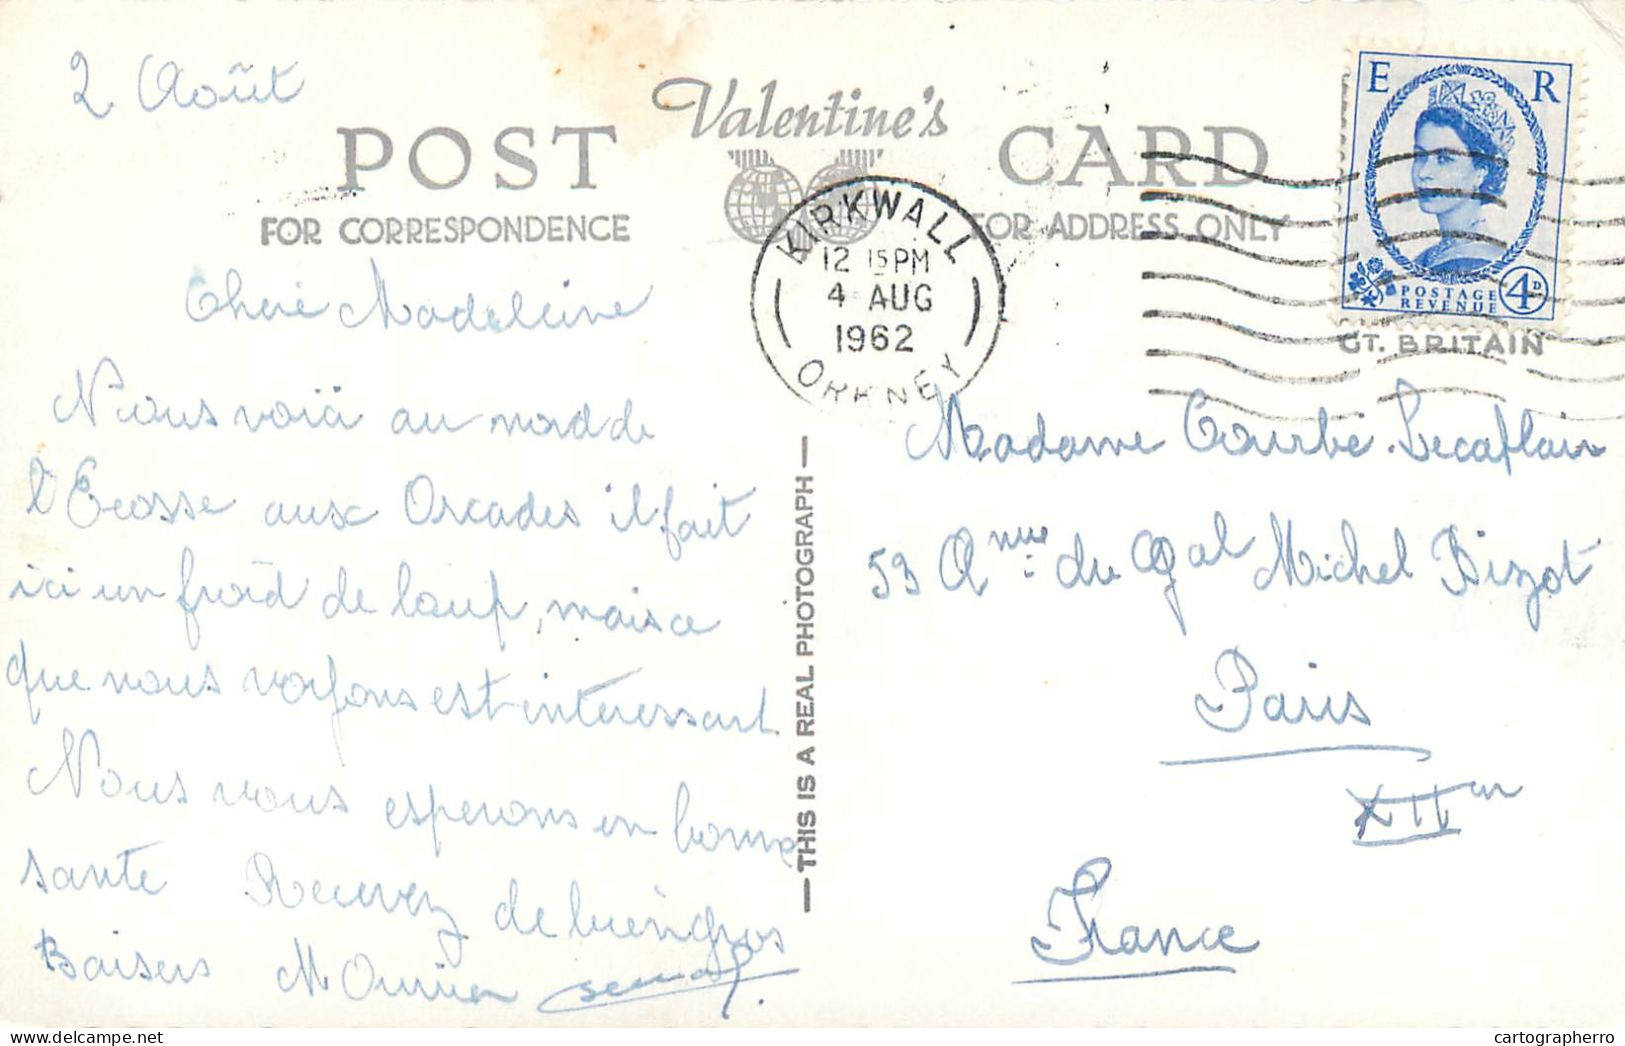 2 Août
POST
Valentine's
CARD
FOR CORRESPONDENCE
FOR ADDRESS ONLY
KIRKWALL
12 15 PM
4 AUG
1962
ORKNEY
E R
POSTAGE
REVENUE
4D
GT. BRITAIN
Chere Madeleine
Nous voià au nord de
l'Ecosse aux Orcades il fait
ici un froid de loup, mais ce
que nous voyons est interessant
Nous vous esperons en bonne
sante Recevez de bien gros
Baisers M
— THIS IS A REAL PHOTOGRAPH —
Madame Courbe-Lecaplain
53 du Gal Michel Bizot
Paris
XII
France
cartographerro